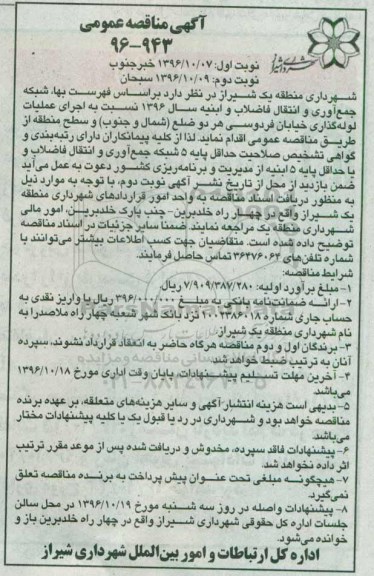 آگهی مناقصه عمومی
۹۶-۹۴۳
نوبت اول: ۱۳۹۶/۱۰/۰۷ خبرجنوب
نوبت دوم: ۱۳۹۶/۱۰/۰۹ سبحان
شهرداری منطقه یک شیراز در نظر دارد براساس فهرست بها، شبکه
جمع‌آوری و انتقال فاضلاب و ابنیه سال ۱۳۹۶ نسبت به اجرای عملیات
لوله‌گذاری خیابان فردوسی هر دو ضلع (شمال و جنوب) و سطح منطقه از
طریق مناقصه عمومی اقدام نماید. لذا از کلیه پیمانکاران دارای رتبه‌بندی و
گواهی تشخیص صلاحیت حداقل پایه ۵ شبکه جمع‌آوری و انتقال فاضلاب و
یا حداقل پایه ۵ ابنیه از مدیریت و برنامه‌ریزی کشور دعوت به عمل می‌آید
ضمن بازدید از محل از تاریخ نشر آگهی نوبت دوم، با توجه به موارد ذیل
به منظور دریافت اسناد مناقصه به واحد امور قراردادهای شهرداری منطقه
یک شیراز واقع در چهار راه خلدبرین- جنب پارک خلدبرین، امور مالی
شهرداری منطقه یک مراجعه نمایند. ضمناً سایر جزئیات در اسناد مناقصه
توضیح داده شده است. متقاضیان جهت کسب اطلاعات بیشتر می‌توانند با
شماره تلفن‌های ۳۶۴۷۶۰۶۴ تماس حاصل فرمایند.
شرایط مناقصه:
۱- مبلغ برآورد اولیه: ۷/۹۰۹/۳۸۷/۲۸۰ ریال
۲- ارائه ضمانت‌نامه بانکی به مبلغ ۳۹۶/۰۰۰/۰۰۰ ریال یا واریز نقدی به
حساب جاری شماره ۱۰۰۲۳۸۶۰۱۸ نزد بانک شهر شعبه چهار راه ملاصدرا به
نام شهرداری منطقه یک شیراز.
۳- برندگان اول و دوم مناقصه هرگاه حاضر به انعقاد قرارداد نشوند، سپرده
آنان به ترتیب ضبط خواهد شد.
۴- آخرین مهلت تسلیم پیشنهادات پایان وقت اداری مورخ ۱۳۹۶/۱۰/۱۸
می‌باشد.
۵- بدیهی است هزینه انتشار آگهی و سایر هزینه‌های متعلقه، بر عهده برنده
مناقصه خواهد بود و شهرداری در رد یا قبول یک یا کلیه پیشنهادات مختار
می‌باشد.
۶- پیشنهادات فاقد سپرده، مخدوش و دریافت شده پس از موعد مقرر ترتیب
اثر داده نخواهد شد.
۷- هیچگونه مبلغی تحت عنوان پیش پرداخت به برنده مناقصه تعلق
نمی‌گیرد.
۸- پیشنهادات واصله در روز سه شنبه مورخ ۱۳۹۶/۱۰/۱۹ در محل سالن
جلسات اداره کل حقوقی شهرداری شیراز واقع در چهار راه خلدبرین باز و
خوانده می‌شود.
اداره کل ارتباطات و امور بین‌الملل شهرداری شیراز